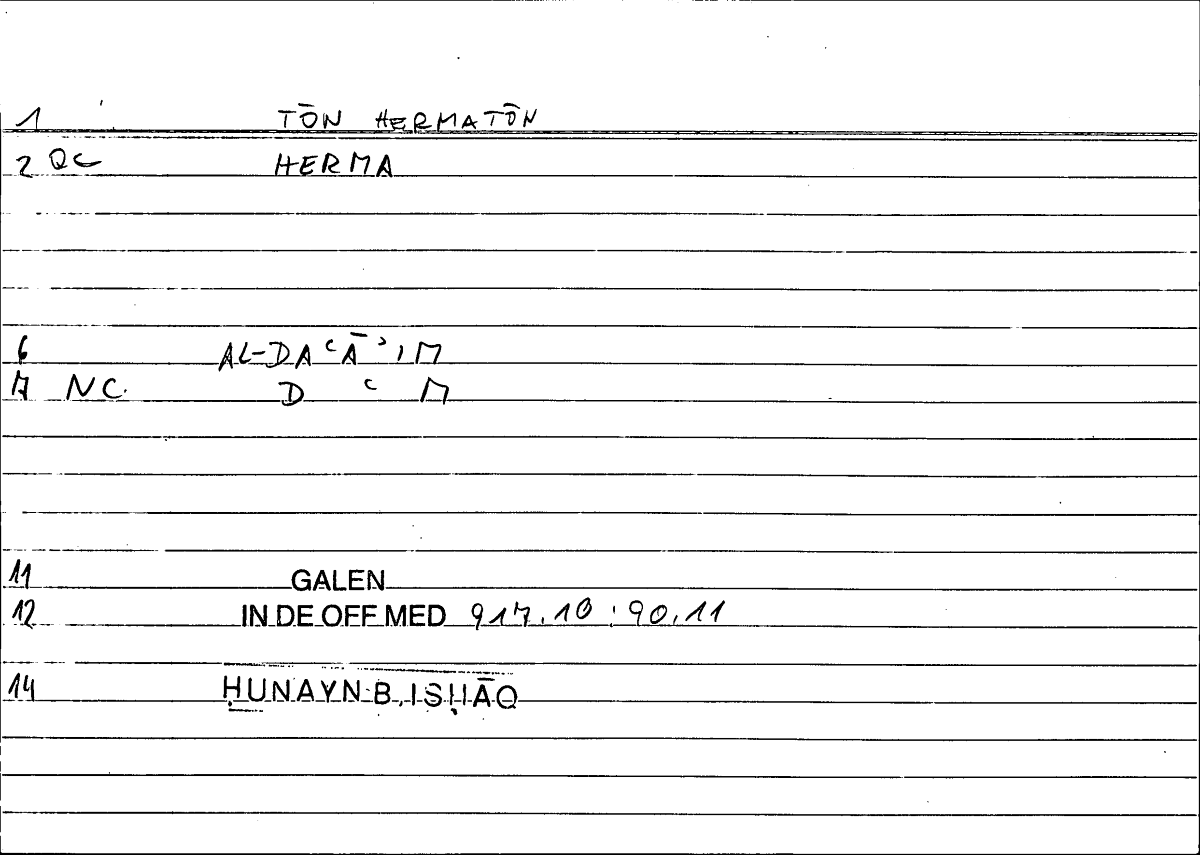 1 TŌN HERMATŌN
2 QC HERMA
6 AL-DAʿĀʾIM
7 NC. D ʿ M
11 GALEN
12 IN DE OFF MED 917.10 : 90.11
14 ḤUNAYN B. ISḤĀQ